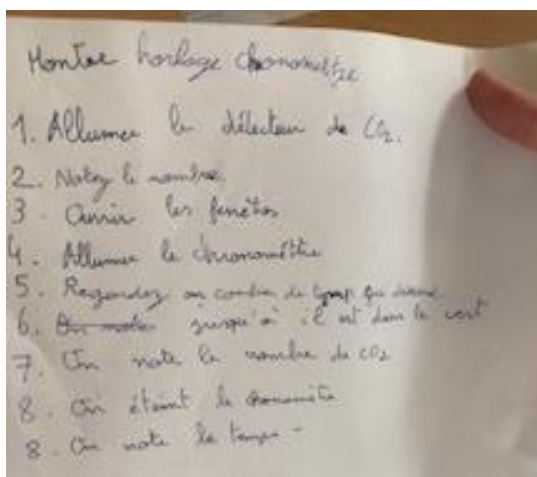 Montre horloge chronomètre
1. Allumer le détecteur de CO2.
2. Notez le nombre.
3. Ouvrir les fenêtres
4. Allumer le chronomètre
5. Regardez en combien de temp
6. On note jusqu'à il est dans le vert
7. On note le nombre de CO2
8. On éteint le chronomètre
8. On note le temps -